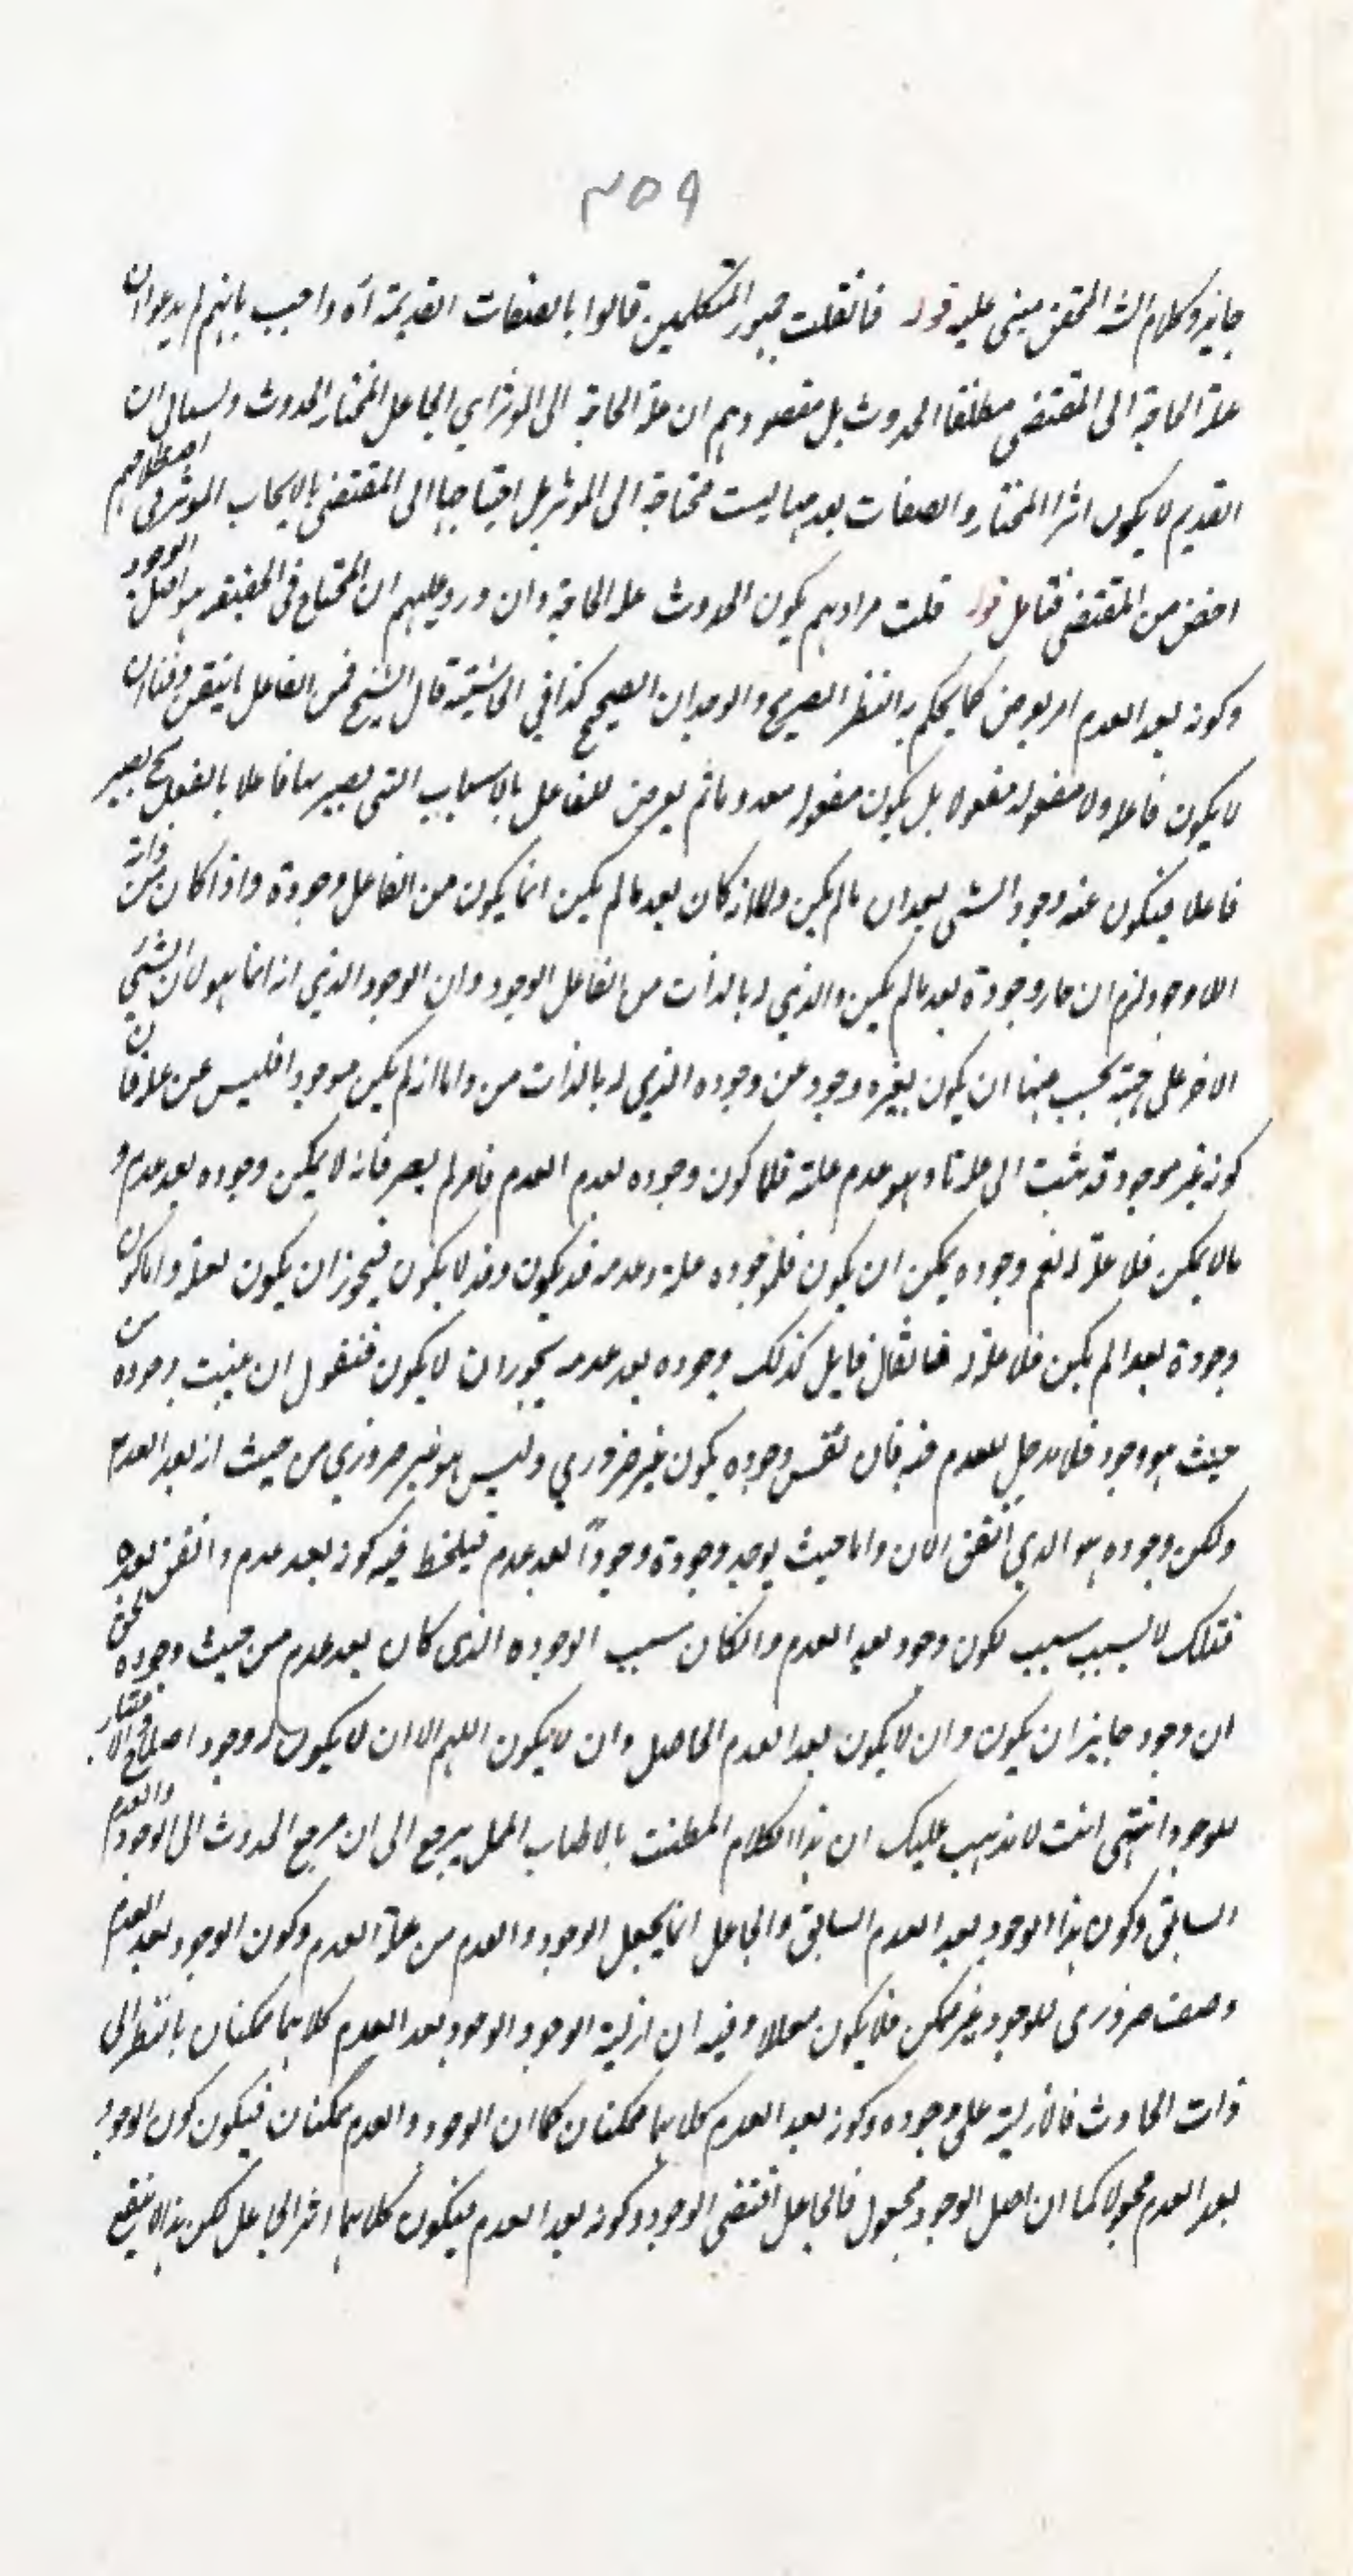 ٣٥٩
جايز وكلام الشه المحقق مبنى عليه قوله فانقلت جمهور المتكلمين قالوا بالصفات القديمة آه واجيب بانهم لم يدعوا ان
علة الحاجة الى المقتضى مطلقا الحدوث بل مقصودهم ان علة الحاجة الى الموثر اي الجاعل المختار الحدوث
القديم لا يكون اثرا للمختار والصفات بعدمها ليست محتاجة الى الموثر بل احتياجها الى المقتضى بالايجاب الموثر في اصطلاحهم
اخص من المقتضى فتامل قوله قلت مرادهم بكون الحدوث علة الحاجة وان ورد عليهم ان المحتاج في الحقيقة هو اصل الوجود
وكونه بعد العدم امر يعرض كما يحكم به النظر الصريح والوجدان الصحيح كذا في الحاشية قال الشيخ فمن الفاعل ما يتفق وقتا ان
لا يكون فاعلا ولا مفعوله مفعولا بل يكون مفعوله معدوما ثم يعرض للفاعل بالاسباب التي يصير بها فاعلا بالفعل فح يصير
فاعلا فيكون عنه وجود الشى بعد ان مالم يكن كان بعد مالم يكن انما يكون من الفاعل وجوده واذا كان من ذاته
اللا وجود لزم ان صار وجوده بعد مالم يكن والذي له بالذات من الفاعل الوجود وان الوجود الذي له انما هو لان الشى
الاخر على جهة يجب عنها ان يكون لغيره وجود عن وجوده الذي له بالذات من واما انه لم يكن موجودا فليس عن علة فان
كونه غير موجود قد ينسب الى علة ما وهو عدم علته فاما كون وجوده بعد العدم فامر لم يصر فانه لا يمكن وجوده بعد عدم و
مالا يمكن فلا علة له نعم وجوده يمكن ان يكون فلوجوده علة وعدمه قد يكون وقد لا يكون فيجوز ان يكون لعلة واما كون
وجوده بعد مالم يكن فلا علة له فان قال قايل كذلك وجوده بعد عدمه يجوز ان لا يكون فنقول ان عنيت وجوده من
حيث هو وجود فلا مدخل للعدم فيه فان نفس وجوده يكون غير ضروري وليس هو غير ضروري من حيث انه بعد العدم
ولكن وجوده هو الذي اتفق الان واما حيث يوجد وجوده وجودا بعد عدم فيلحظ فيه كونه بعد عدم واتفق بعده
فتلك لا بسبب سبب لكون وجود بعد العدم وانكان سبب الوجوده الذى كان بعد عدم من حيث وجوده فحق
ان وجود جايز ان يكون وان لا يكون بعد العدم الحاصل وان لا يكون اللهم الا ان لا يكون له وجود اصلا
للوجود انتهى انت لا يذهب عليك ان هذا الكلام المطنب بالاطناب الممل يرجع الى ان مرجع الحدوث الى الوجود والعدم
السابق وكون هذا الوجود بعد العدم السابق والجاعل انما يجعل الوجود والعدم من علة العدم وكون الوجود بعد العدم
وصف ضرورى للوجود غير ممكن فلا يكون معللا وفيه ان ازلية الوجود والوجود بعد العدم كلاهما ممكنان بالنظر الى
ذات الحادث فالازلية على وجوده وكونه بعد العدم كلاهما ممكنان كما ان الوجود والعدم ممكنان فيكون كون الوجود
بعد العدم مجعولا كما ان اصل الوجود مجعول فالجاعل اقتضى الوجود وكونه بعد العدم فيكون كلاهما اثر الجاعل لكن هذا لا ينفع